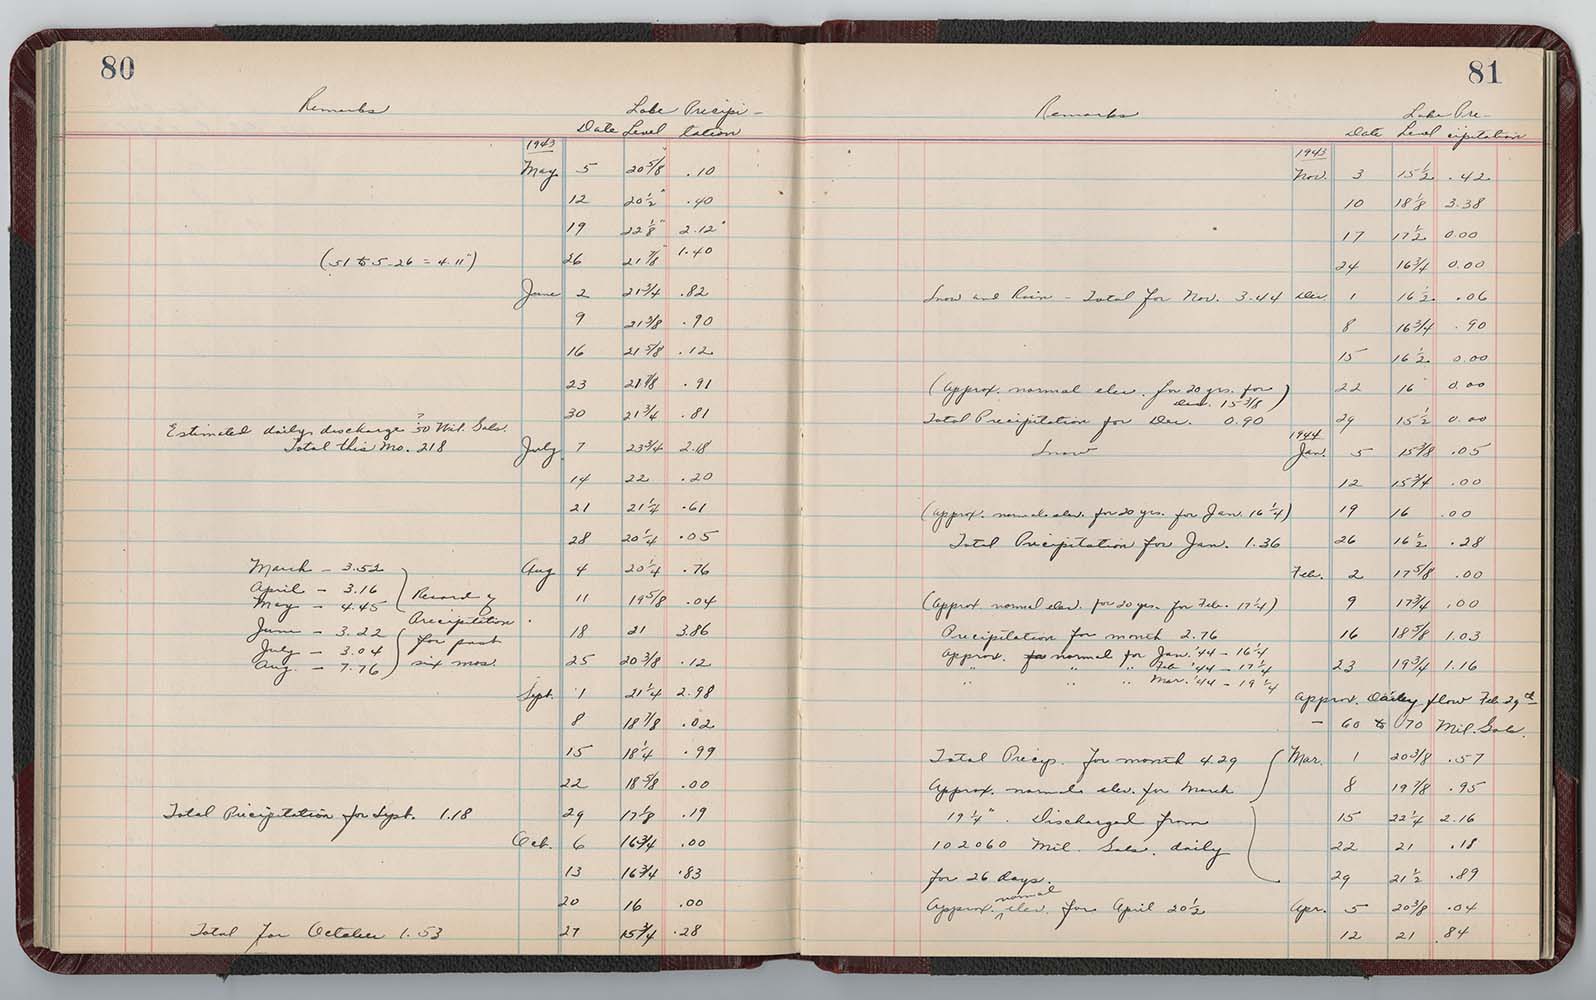 80
Remarks Date Lake Level Precipi-tation
1943
May 5 20 5/8" .10
12 20 1/2" .40
19 22 1/8" 2.12"
(51 to 5-26 = 4.11") 26 21 7/8" 1.40
June 2 21 3/4 .82
9 21 3/8 .90
16 21 5/8 .12
23 21 7/8 .91
30 21 3/4 .81
Estimated daily discharge ? 50 Mil. Gals.
Total this Mo. 218 July 7 23 3/4 2.18
14 22 .20
21 21 1/4 .61
28 20 1/4 .05
March - 3.52 Aug 4 20 1/4 .76
April - 3.16 Record of
May - 4.45 Precipitation 11 19 5/8 .04
June - 3.22 for past 18 21 3.86
July - 3.04 six mos.
Aug. - 7.76 25 20 3/8 .12
Sept. 1 21 1/4 2.98
8 18 7/8 .02
15 18 1/4 .99
22 18 5/8 .00
Total Precipitation for Sept. 1.18 29 17 1/8 .19
Oct. 6 16 3/4 .00
13 16 3/4 .83
20 16 .00
Total for October 1.53 27 15 3/4 .28
81
Remarks Date Lake Level Pre-cipitation
1943
Nov. 3 15 1/2 .42
10 18 1/8 3.38
17 17 1/2 0.00
24 16 3/4 0.00
Snow and Rain - Total for Nov. 3.44 Dec. 1 16 1/2 .06
8 16 3/4 .90
15 16 1/2 0.00
(Approx. normal elev. for 20 yrs. for 22 16 0.00
Dec. 15 3/8)
Total Precipitation for Dec. 0.90 29 15 1/2 0.00
1944
Snow Jan. 5 15 3/8 .05
12 15 3/4 .00
(Approx. normal elev. for 20 yrs. for Jan. 16 1/4) 19 16 .00
Total Precipitation for Jan. 1.36 26 16 1/2 .28
Feb. 2 17 5/8 .00
(Approx. normal elev. for 20 yrs. for Feb. 17 1/4) 9 17 3/4 .00
Precipitation for month 2.76 16 18 5/8 1.03
Approx. for normal for Jan. '44 - 16 1/4
" " " Feb '44 - 17 1/4 23 19 3/4 1.16
" " " Mar. '44 - 19 1/4
Approx. Dailey flow Feb 29th
- 60 to 70 Mil. Gals.
Total Precip. for month 4.29 Mar. 1 20 3/8 .57
Approx. normal elev. for March 8 19 7/8 .95
19 1/4". Discharged from 15 22 1/4 2.16
102060 Mil. Gals. daily 22 21 .18
for 26 days. 29 21 1/2 .89
Approx. normal elev. for April 20 1/2 Apr. 5 20 3/8 .04
12 21 .84